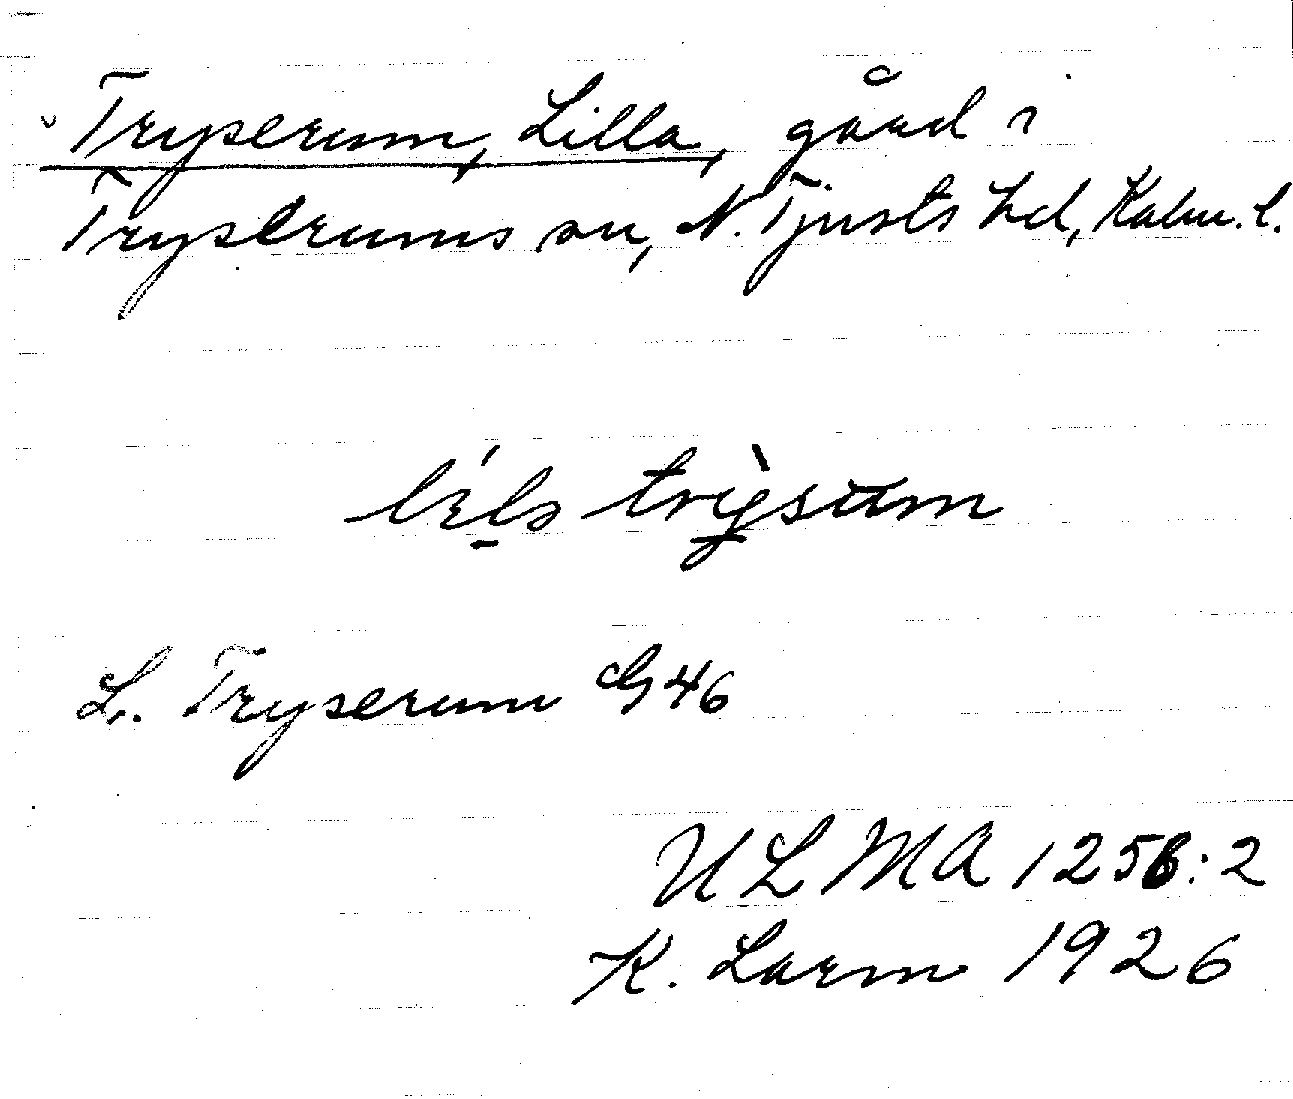 Tryserum, Lilla, gård i
Tryserums sn, N. Tjusts hd, Kalm. l.
L. Tryserum G 46
ULMA 1256:2
K. Larm 1926